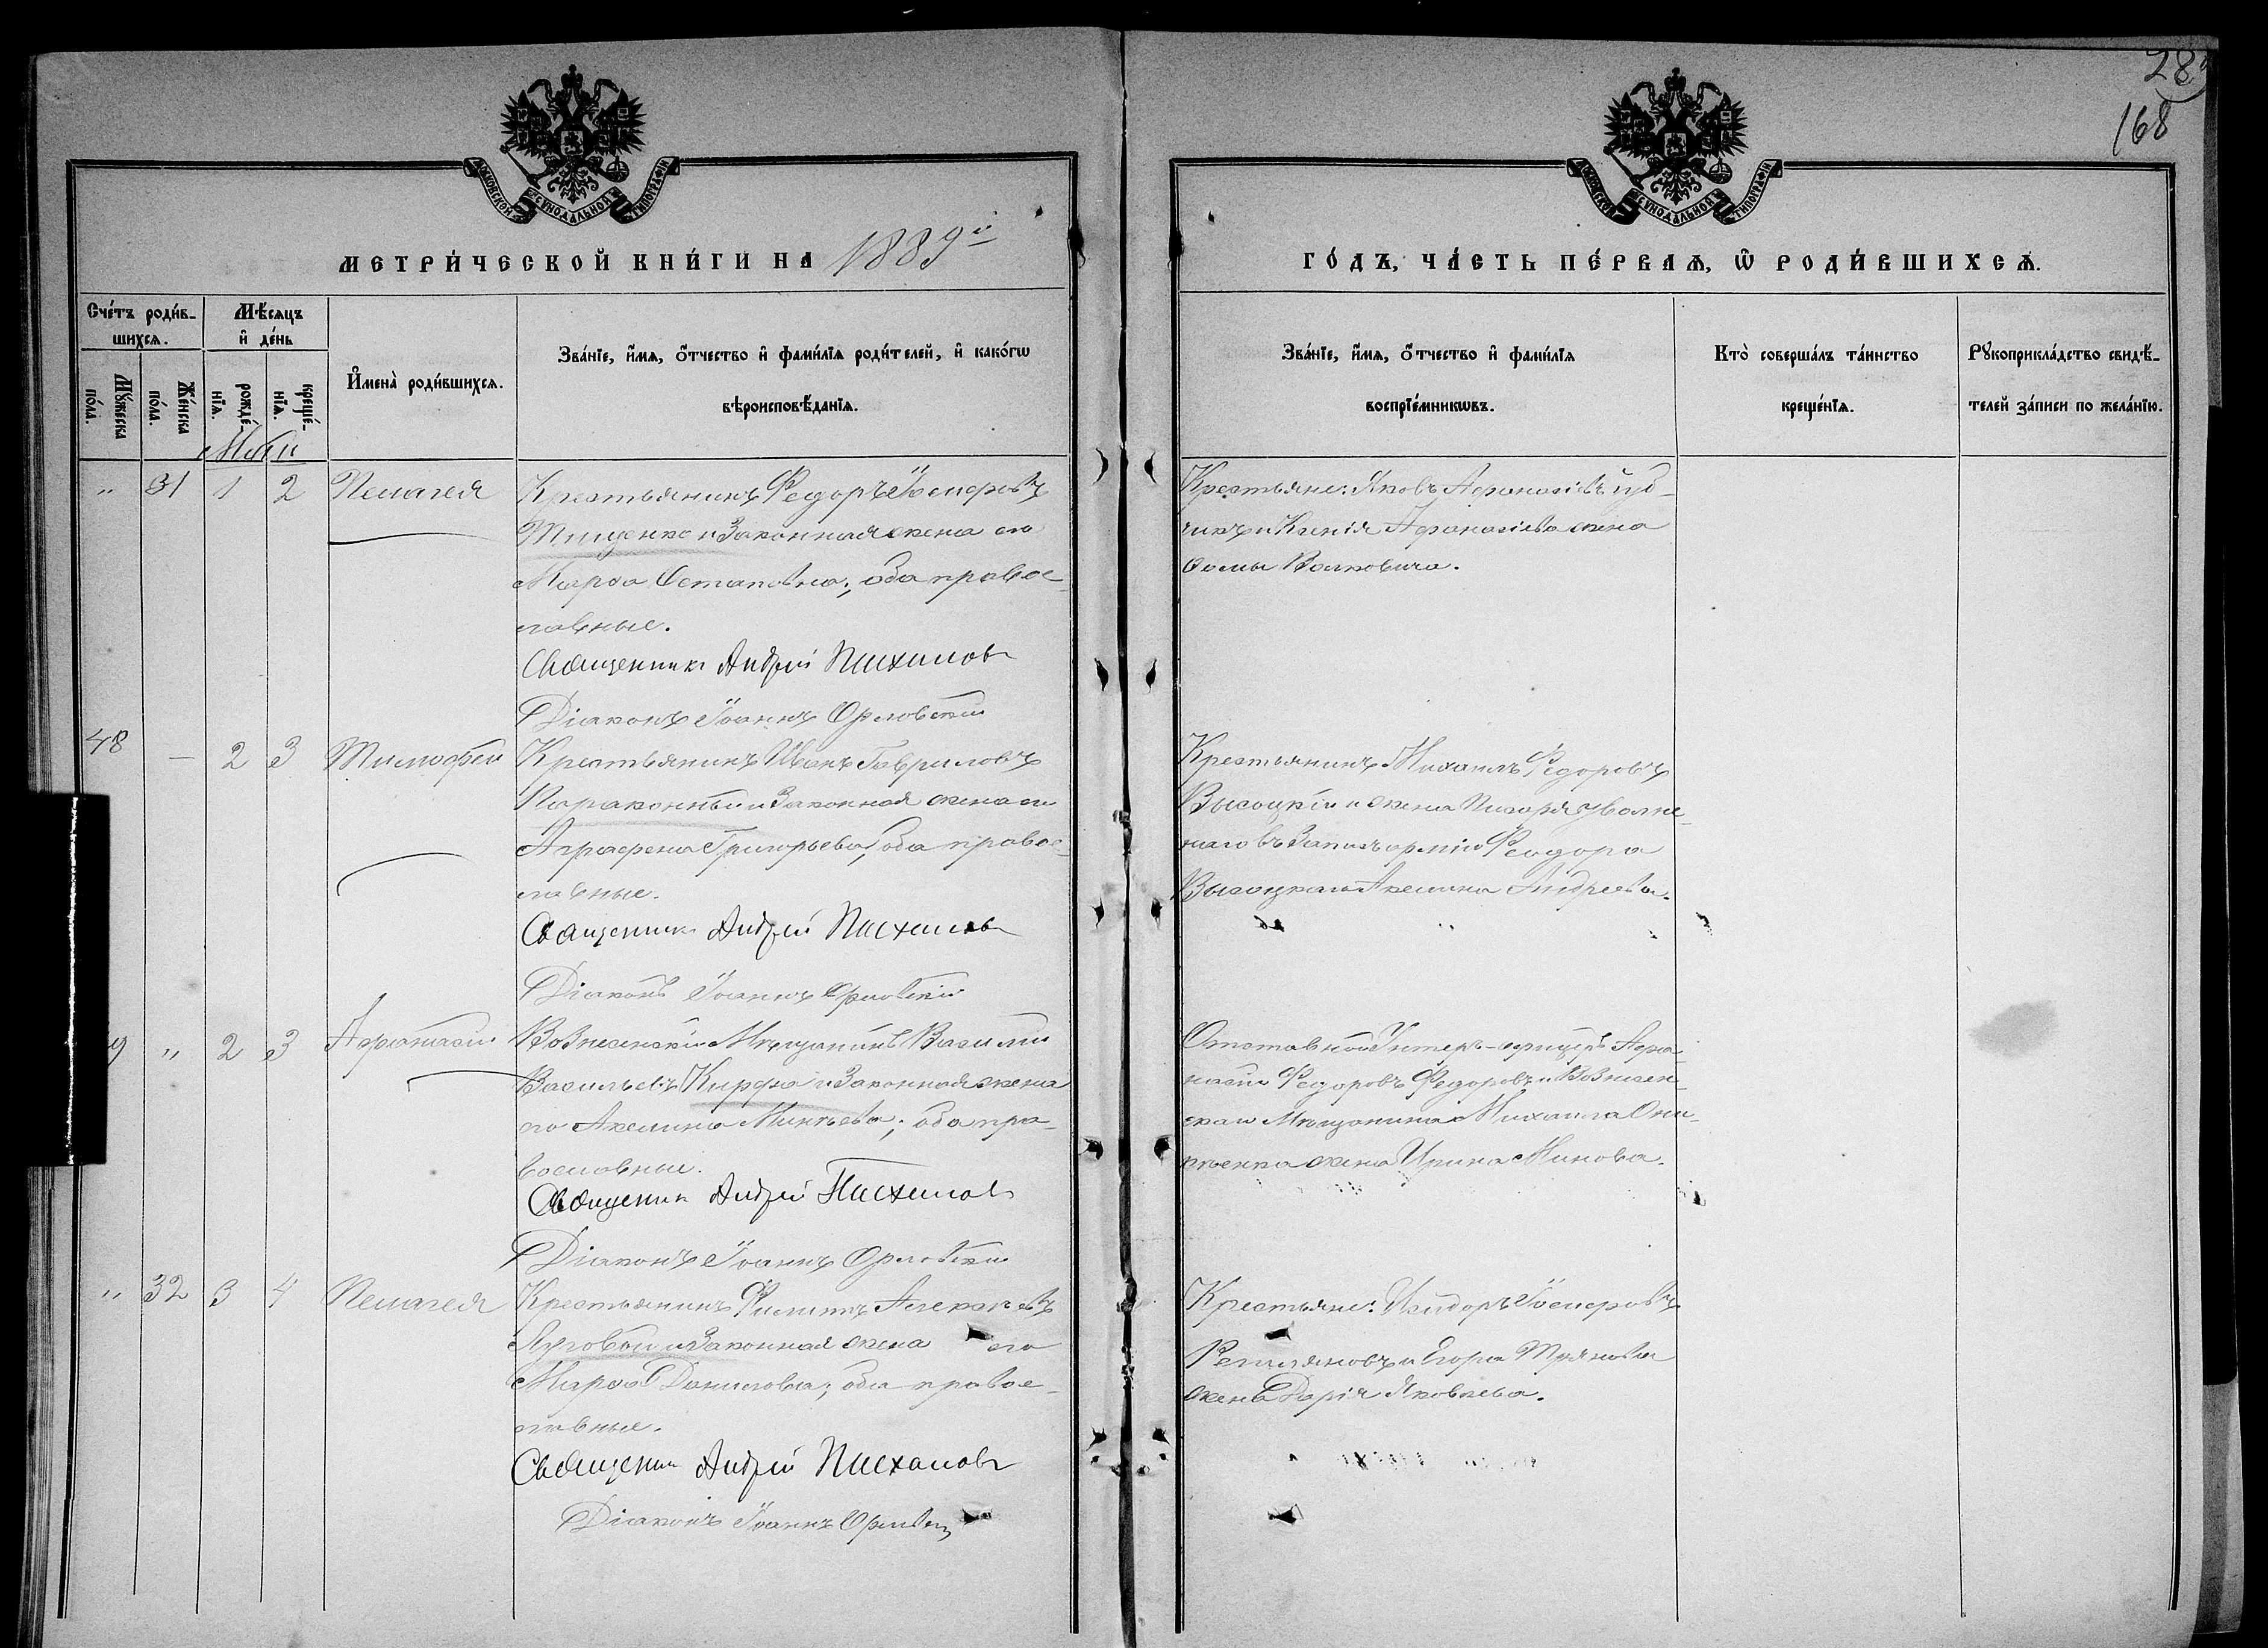 28
168
МОСКОВСКОЙ СѴНОДАЛЬНОЙ ТИПОГРАФІИ
МОСКОВСКОЙ СѴНОДАЛЬНОЙ ТИПОГРАФІИ
МЕТРИ́ЧЕСКОЙ КНИ́ГИ НА 1889й
ГО́ДЪ, ЧА́СТЬ ПЕ́РВАѦ, Ѿ РОДИ́ВШИХСѦ.
Сче́тъ роди́в-
шихсѧ.
Мꙋ́жеска по́ла.
Же́нска по́ла.
Мѣ́сѧцъ
и҆ де́нь
рожде́-
нїѧ.
креще́-
нїѧ.
И҆мена̀ роди́вшихсѧ.
Зва́нїе, и҆́мѧ, ѻ҆́тчество и҆ фами́лїѧ роди́телей, и҆ како́гѡ
вѣроисповѣ́данїѧ.
Зва́нїе, и҆́мѧ, ѻ҆́тчество и҆ фами́лїѧ
воспрїе́мникѡвъ.
Кто̀ соверша́лъ та́инство
креще́нїѧ.
Рꙋкоприкла́дство свидѣ́-
телей за́писи по жела́нїю.
Маи
" 31 1 2 Пелагея
Крестьянинъ Федоръ Іосифовъ
Тищенко и Законная жена его
Марфа Остапова; оба правос-
лавные.
Священникъ Андрей Пасхаловъ
Діаконъ Іоаннъ Орловскій
Крестьяне: Яковъ Афанасіевъ
и Ксенія Афанасіева жена
Фомы Волковича.
48 — 2 3 Тимофей
Крестьянинъ Иванъ Гавриловъ
и Законная жена его
Аграфена Григорьева, оба правос-
лавные.
Священникъ Андрей Пасхаловъ
Діаконъ Іоаннъ Орловскій
Крестьянинъ Михаилъ Федоровъ
Высоцкій и жена Писаря уволне-
наго въ Запасъ арміи Феодора
Высоцкаго Акелина Андреева.
9 " 2 3 Афанасій
Вознесенскій Мѣщанинъ Василій
Васильевъ Кирфа и Законная жена
его Акелина Минѣева; оба пра-
вославные.
Священникъ Андрей Пасхаловъ
Діаконъ Іоаннъ Орловскій
Отставной Унтеръ-офицеръ Афа-
насій Федоровъ Федоровъ и Вознесен-
скаго Мѣщанина Михаила Они-
жена Ирина Минова.
" 32 3 4 Пелагея
Крестьянинъ Филиппъ Алексѣевъ
Луговой и Законная жена его
Марфа Данилова; оба правос-
лавные.
Священникъ Андрей Пасхаловъ
Діаконъ Іоаннъ Орловскій
Крестьяне: Исидоръ Іосифовъ
и Егора
жена Дарія Яковлева.